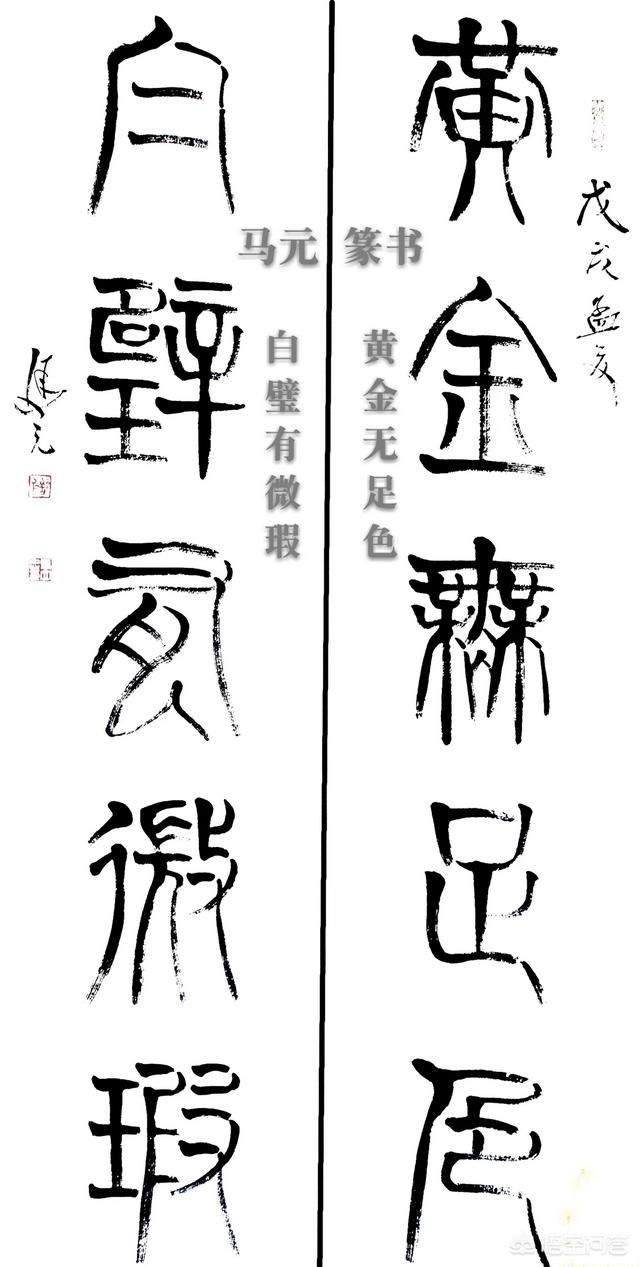 戊戌孟夏
黄金無足色
白璧有微瑕
马元
马元 篆书
黄金无足色
白璧有微瑕
悟空问答